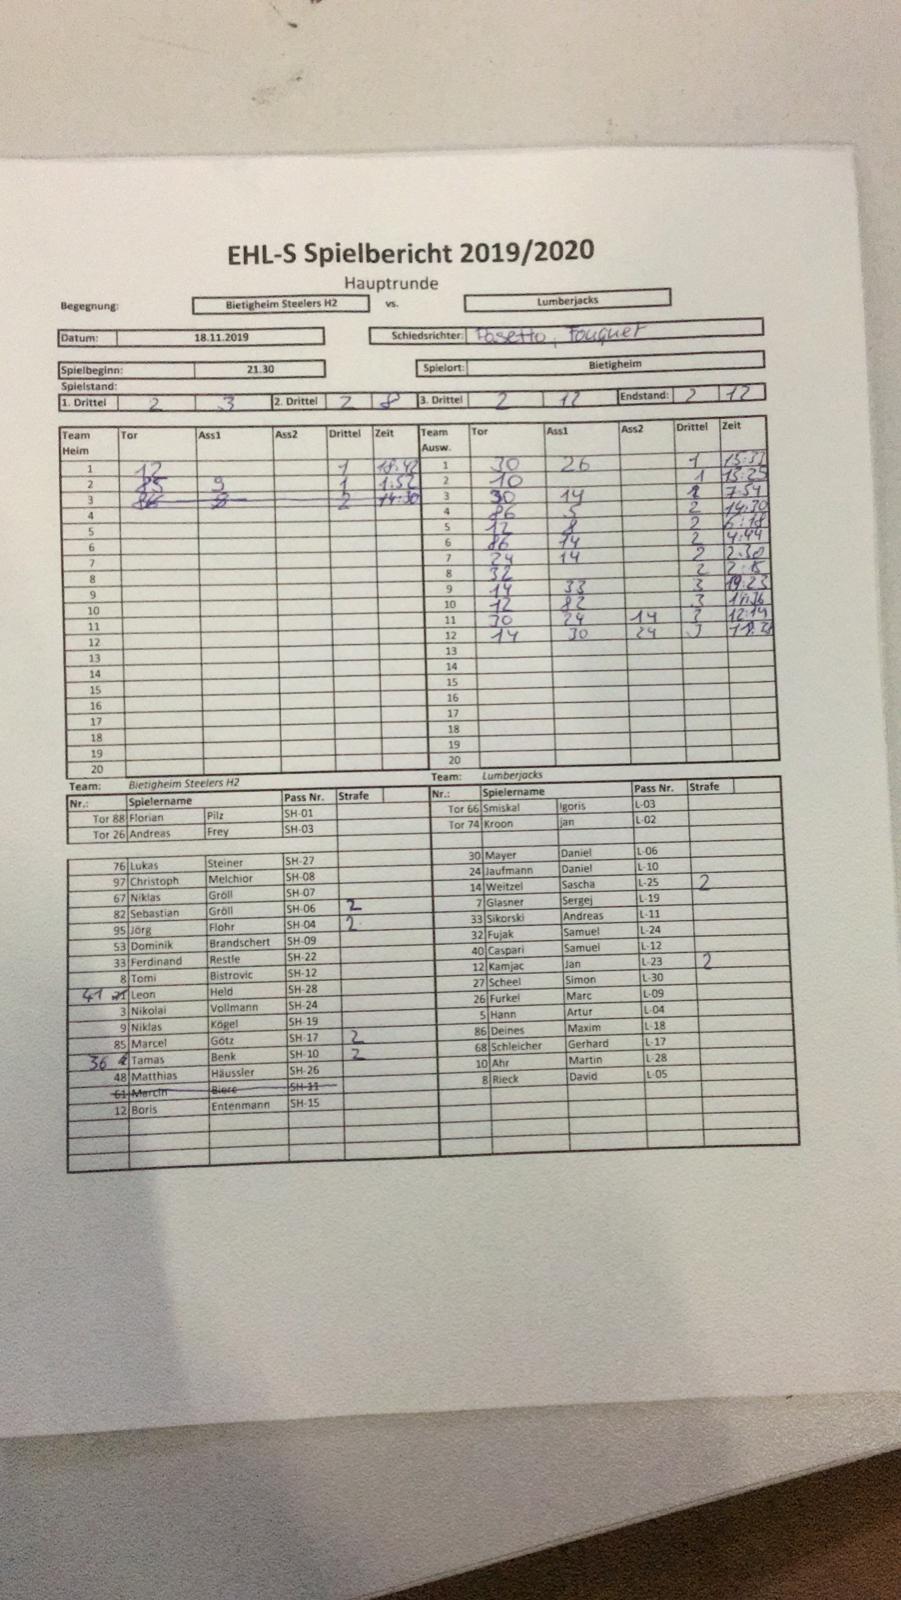 EHL-S Spielbericht 2019/2020
Hauptrunde
Begegnung: Bietigheim Steelers H2 vs. Lumberjacks
Datum: 18.11.2019 Schiedsrichter: Pasetto, Fouquet
Spielbeginn: 21.30 Spielort: Bietigheim
Spielstand:
1. Drittel 2 3 2. Drittel 2 8 3. Drittel 2 12 Endstand: 2 12
Team Heim Tor Ass1 Ass2 Drittel Zeit Team Ausw. Tor Ass1 Ass2 Drittel Zeit
1 12 1 18:42 1 30 26 1 15:31
2 85 9 1 1:52 2 10 1 13:25
3 86 8 2 14:30 3 30 14 1 7:54
4 4 86 5 2 14:30
5 5 12 8 2 6:18
6 6 86 14 2 4:44
7 7 24 14 2 2:30
8 8 32 2 2:15
9 9 14 33 3 19:23
10 10 12 82 3
11 11 30 24 14 3 12:14
12 12 14 30 24 3
13 13
14 14
15 15
16 16
17 17
18 18
19 19
20 20
Team: Bietigheim Steelers H2 Team: Lumberjacks
Nr.: Spielername Pass Nr. Strafe Nr.: Spielername Pass Nr. Strafe
Tor 88 Florian Pilz SH-01 Tor 66 Smiskal Igoris L-03
Tor 26 Andreas Frey SH-03 Tor 74 Kroon jan L-02
76 Lukas Steiner SH-27 30 Mayer Daniel L-06
97 Christoph Melchior SH-08 24 Jaufmann Daniel L-10
67 Niklas Gröll SH-07 14 Weitzel Sascha L-25 2
82 Sebastian Gröll SH-06 2 7 Glasner Sergej L-19
95 Jörg Flohr SH-04 2 33 Sikorski Andreas L-11
53 Dominik Brandschert SH-09 32 Fujak Samuel L-24
33 Ferdinand Restle SH-22 40 Caspari Samuel L-12
8 Tomi Bistrovic SH-12 12 Kamjac Jan L-23 2
41 Leon Held SH-28 27 Scheel Simon L-30
3 Nikolai Vollmann SH-24 26 Furkel Marc L-09
9 Niklas Kögel SH-19 5 Hann Artur L-04
85 Marcel Götz SH-17 2 86 Deines Maxim L-18
36 Tamas Benk SH-10 2 68 Schleicher Gerhard L-17
48 Matthias Häussler SH-26 10 Ahr Martin L-28
61 Marcin Biere SH-11 8 Rieck David L-05
12 Boris Entenmann SH-15